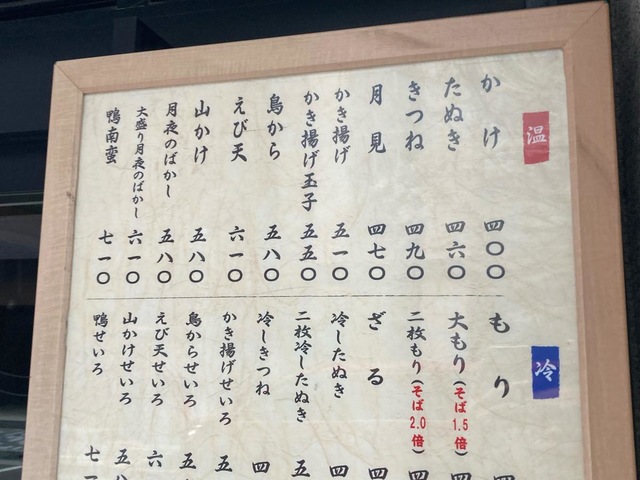 温
かけ 四〇〇
たぬき 四六〇
きつね 四九〇
月見 四七〇
かき揚げ 五一〇
かき揚げ玉子 五五〇
鳥から 五八〇
えび天 六一〇
山かけ 五八〇
月夜のばかし 五八〇
大盛り月夜のばかし 六一〇
鴨南蛮 七一〇
冷
もり 四
大もり(そば1.5倍) 四
二枚もり(そば2.0倍) 四
ざる 四
冷したぬき 四
二枚冷したぬき 五
冷しきつね 四
かき揚げせいろ 五
鳥からせいろ 五
えび天せいろ 六
山かけせいろ 五八
鴨せいろ 七一